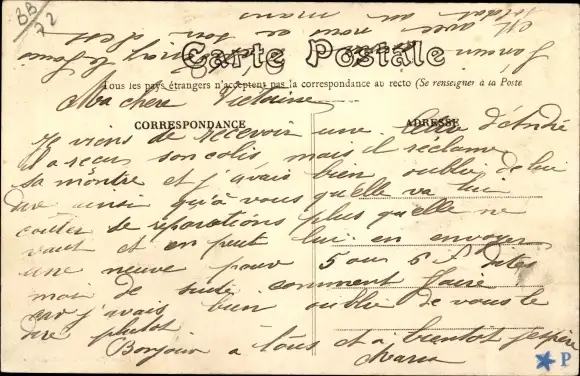 BB
72
Carte Postale
Tous les pays étrangers n'acceptent pas la correspondance au recto (Se renseigner à la Poste
Ma chère Victorine
CORRESPONDANCE
ADRESSE
Je viens de recevoir une lettre d'André
il a reçu son colis mais il réclame
sa montre et j'avais bien oublié de lui
dire ainsi qu'à vous qu'elle va lui
coûter de réparations plus qu'elle ne
vaut et on peut lui en envoyer
une neuve pour 5 ou 6 F dites
moi de suite comment faire
car j'avais bien oublié de vous le
dire plutot
Bonjour a tous et a bientot j'espère
Maria
P